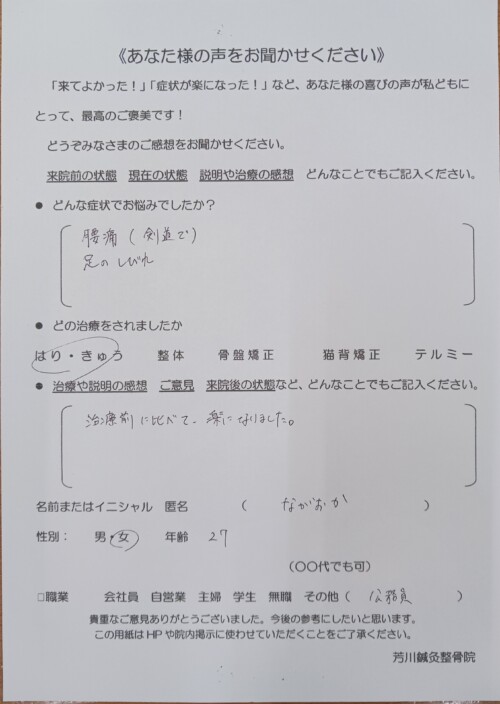 《あなた様の声をお聞かせください》
「来てよかった！」「症状が楽になった！」など、あなた様の喜びの声が私どもに
とって、最高のご褒美です！
どうぞみなさまのご感想をお聞かせください。
来院前の状態　現在の状態　説明や治療の感想　どんなことでもご記入ください。
● どんな症状でお悩みでしたか？
腰痛（剣道で）
足のしびれ
● どの治療をされましたか
はり・きゅう　整体　骨盤矯正　猫背矯正　テルミー
● 治療や説明の感想　ご意見　来院後の状態など、どんなことでもご記入ください。
治療前に比べて、楽になりました。
名前またはイニシャル　匿名　（　ながおか　）
性別：　男・女　年齢　27
（〇〇代でも可）
□職業　会社員　自営業　主婦　学生　無職　その他（　公務員　）
貴重なご意見ありがとうございました。今後の参考にしたいと思います。
この用紙はHPや院内掲示に使わせていただくことをご了承ください。
芳川鍼灸整骨院